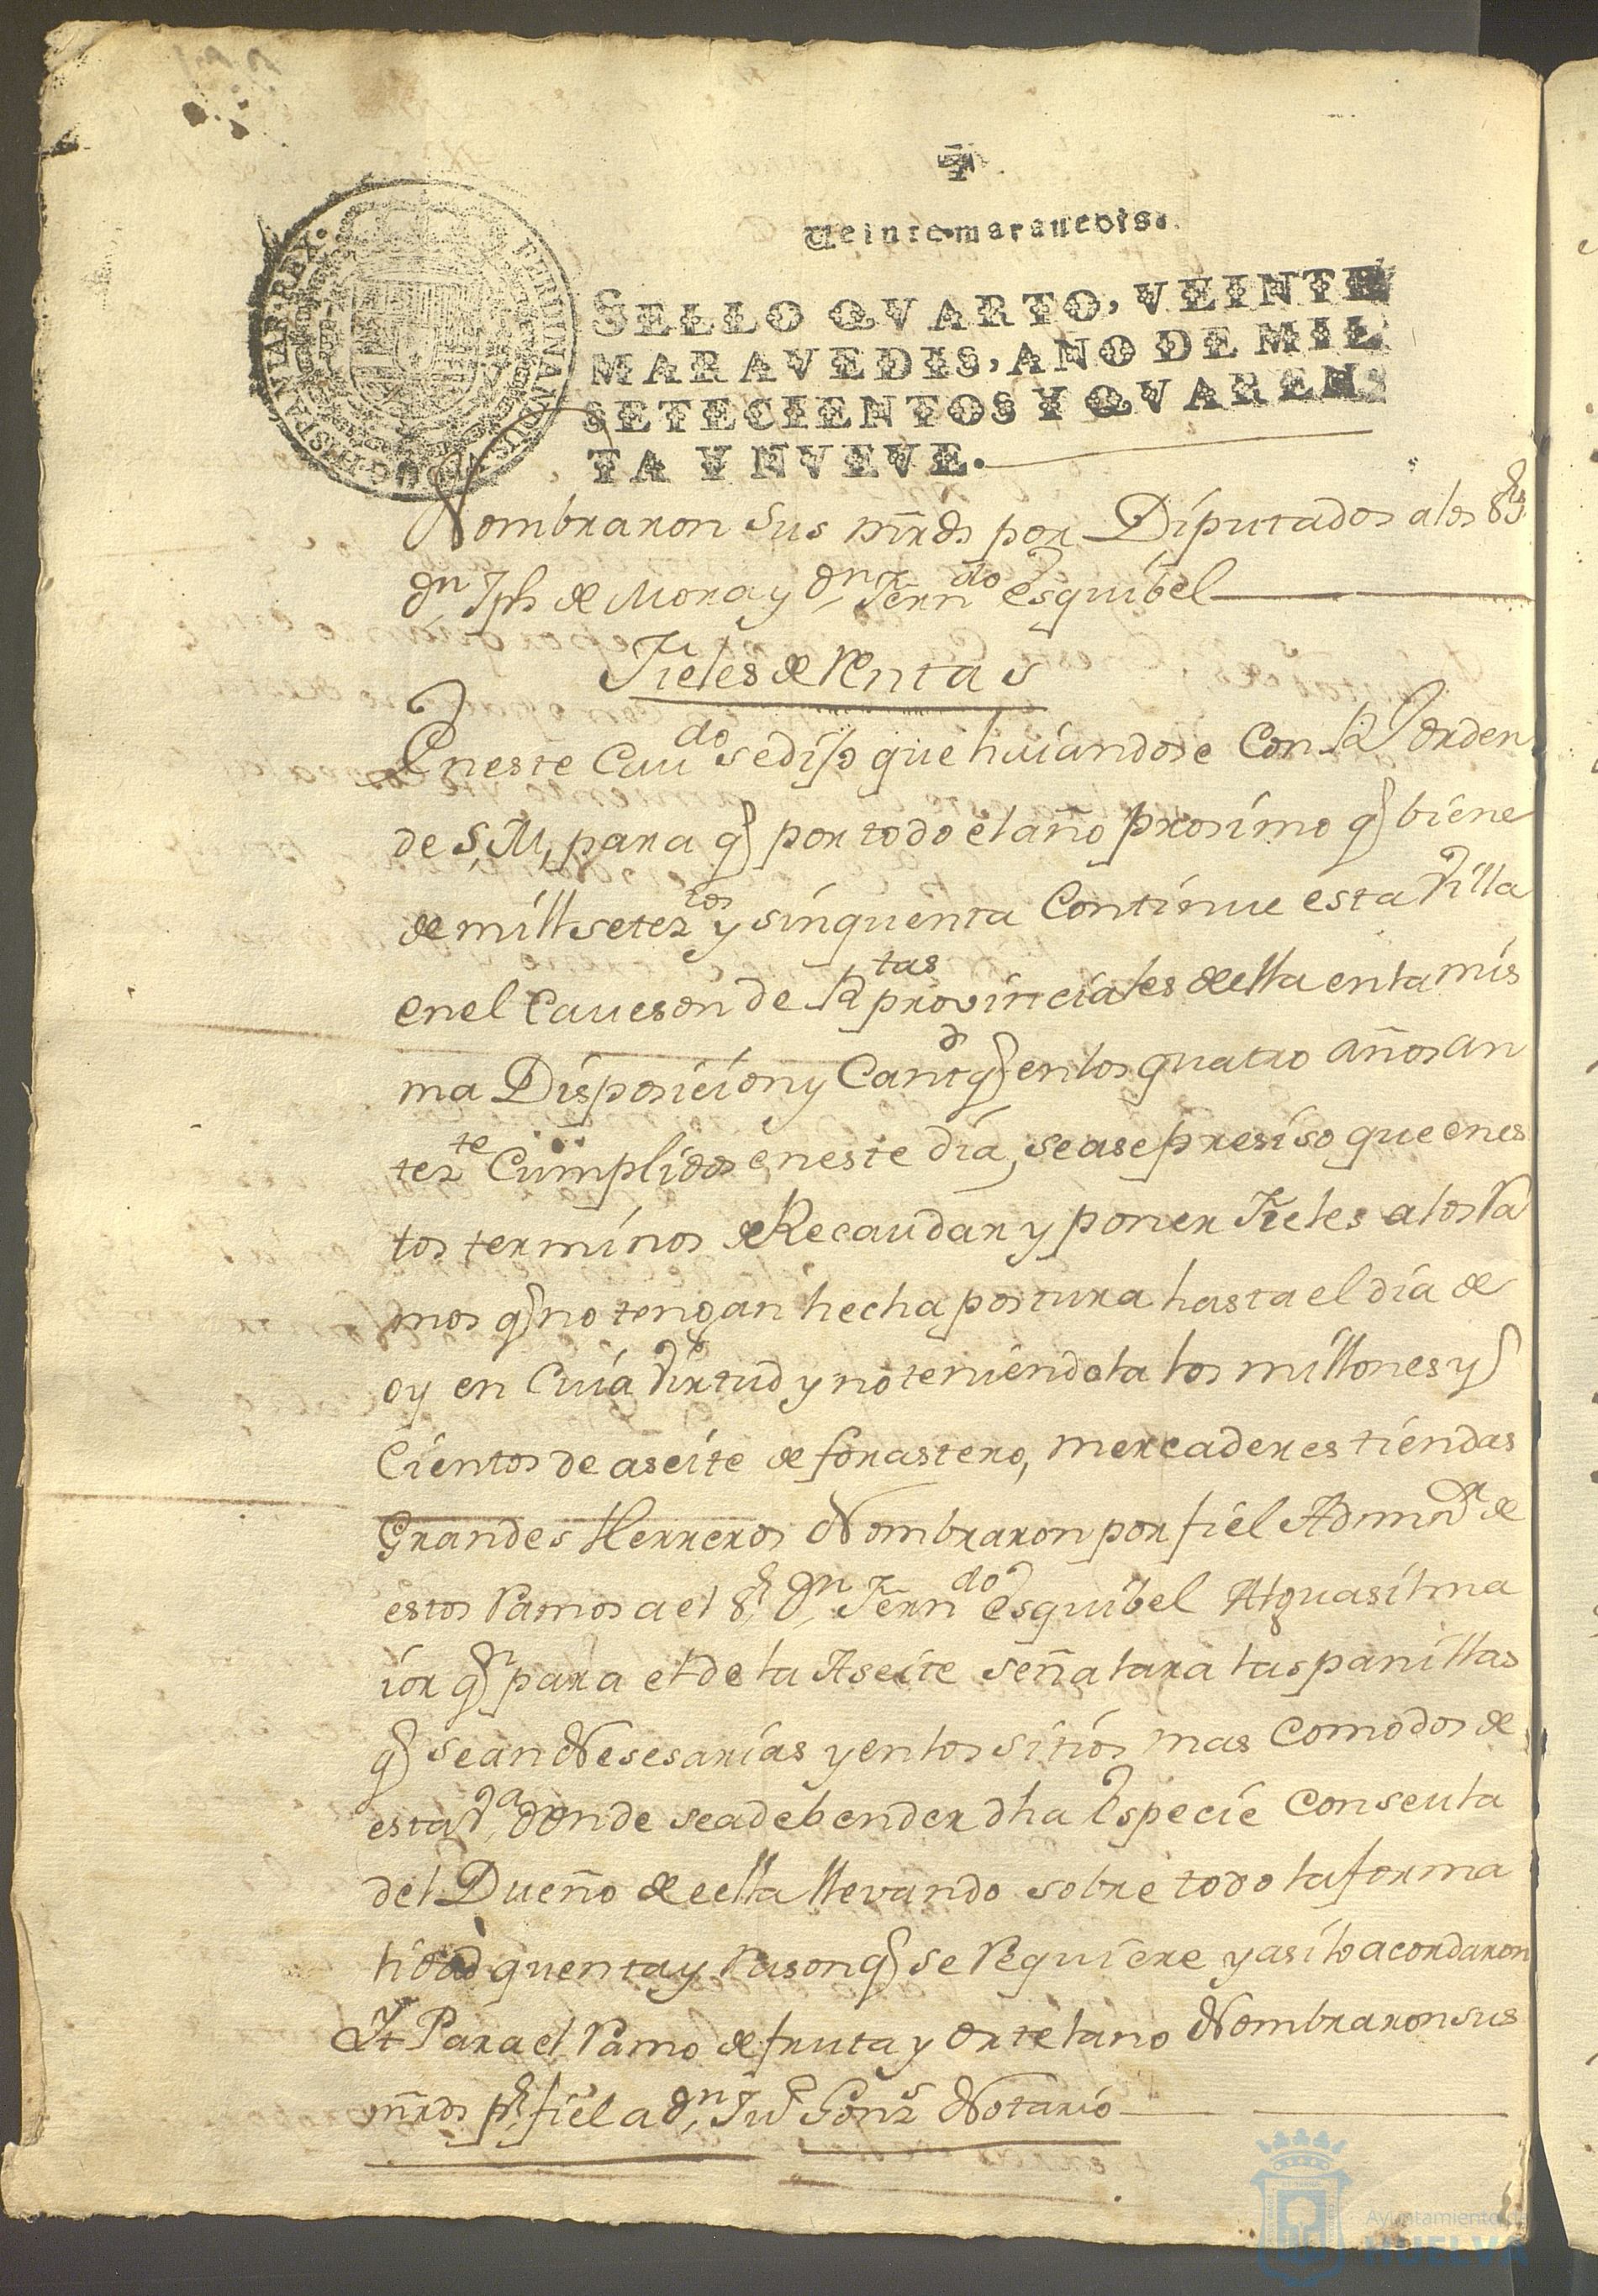 Veinte maravedis.
SELLO QVARTO, VEINTE
MARAVEDIS, AÑO DE MIL
SETECIENTOS Y QVAREN
TA Y NVEVE.
Nombraron Sus mrds por Diputados a los Srs
Dn Jph de Mora y Dn Ferndo esquibel
Fieles de Rentas
En este Caudo se dijo que hauiandose Con Rl orden
de S. M, para q por todo el año prosimo q biene
de mill setezos y sinquenta Continue esta Villa
en el Caueson de Rtas provinciales de ella en la mis
ma Disposicion y Cantd q en los quatro años an
tezte Cumplidos en este dia, se ase presiso que en es
tos terminos de Recaudar y poner Fieles a los Ra
mos q no tengan hecha postura hasta el dia de
oy en Cuia Virtud y no teniendola los millones y
Cientos de aseite de forastero, mercaderes tiendas
Grandes Herreros Nombraron por fiel Admor de
estos Ramos a el Sr Dn Ferndo esquibel Alguasil ma
ior qn para el de la Aseite señalara las panillas
q sean Nesesarias y en los sitios mas Comodos de
esta Va donde sea de bender dha Especie Con
del Dueño de ella llevando sobre todo la forma
lidad quenta y Rason q se Requiere y asi lo acordaron
It Para el Ramo de fruta y ortelano Nombraron sus
mrds pr fiel a Dn Ju Gonz Notario
Ayuntamiento de
HUELVA